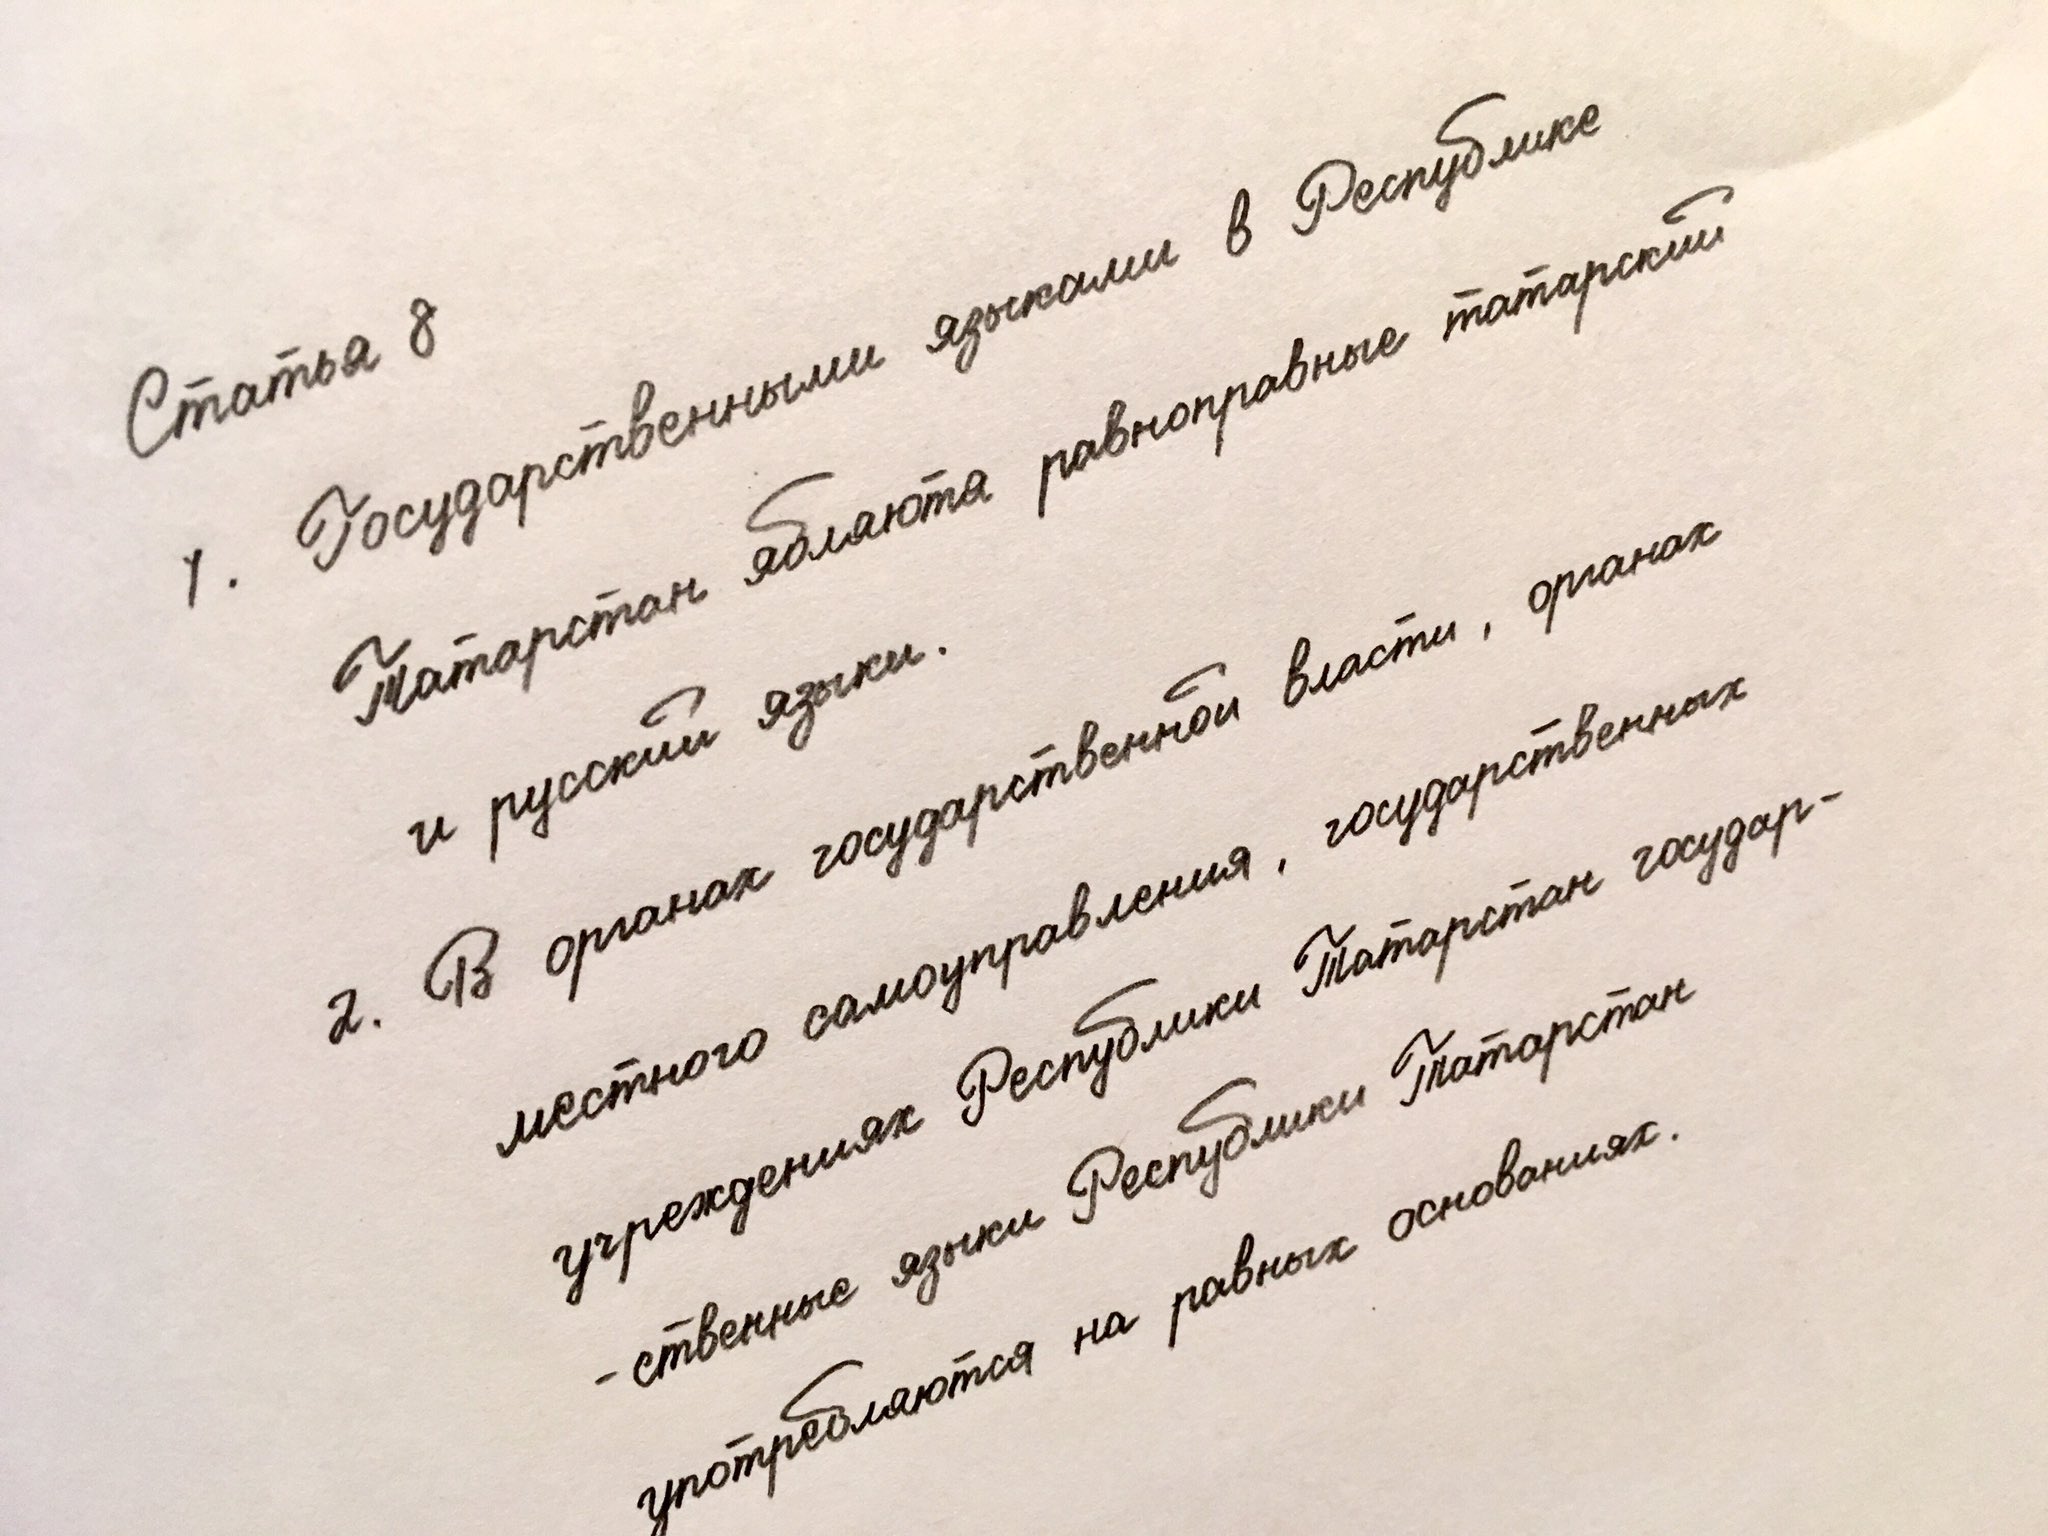 Статья 8
1. Государственными языками в Республике
Татарстанябляюта равноправные татарский
и русский языки.
2. В органах государственной власти, органах
местного самоуправления, государственных
учреждениях Республики Татарстан государ-
-ственные языки Республики Татарстан
употребляются на равных основаниях.